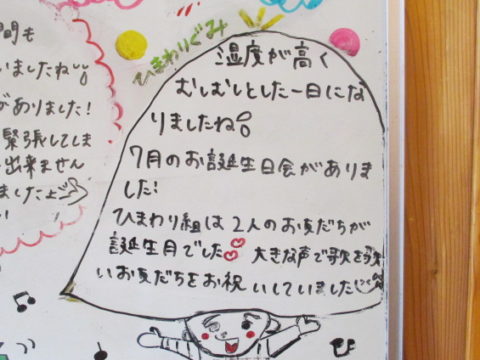 間も
いましたね!!
がありました!
緊張してしま
出来ません
ました
ひまわりぐみ
湿度が高く
むしむしとした一日にな
りましたね!
7月のお誕生日会がありま
した!
ひまわり組は2人のお友だちが
誕生月でした♥ 大きな声で歌を歌
いお友だちをお祝いしていました